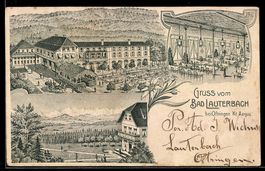 GRUSS vom
BAD LAUTERBACH
bei Oftringen Kt. Aargau
J.
Lautenbach
Oftringen.